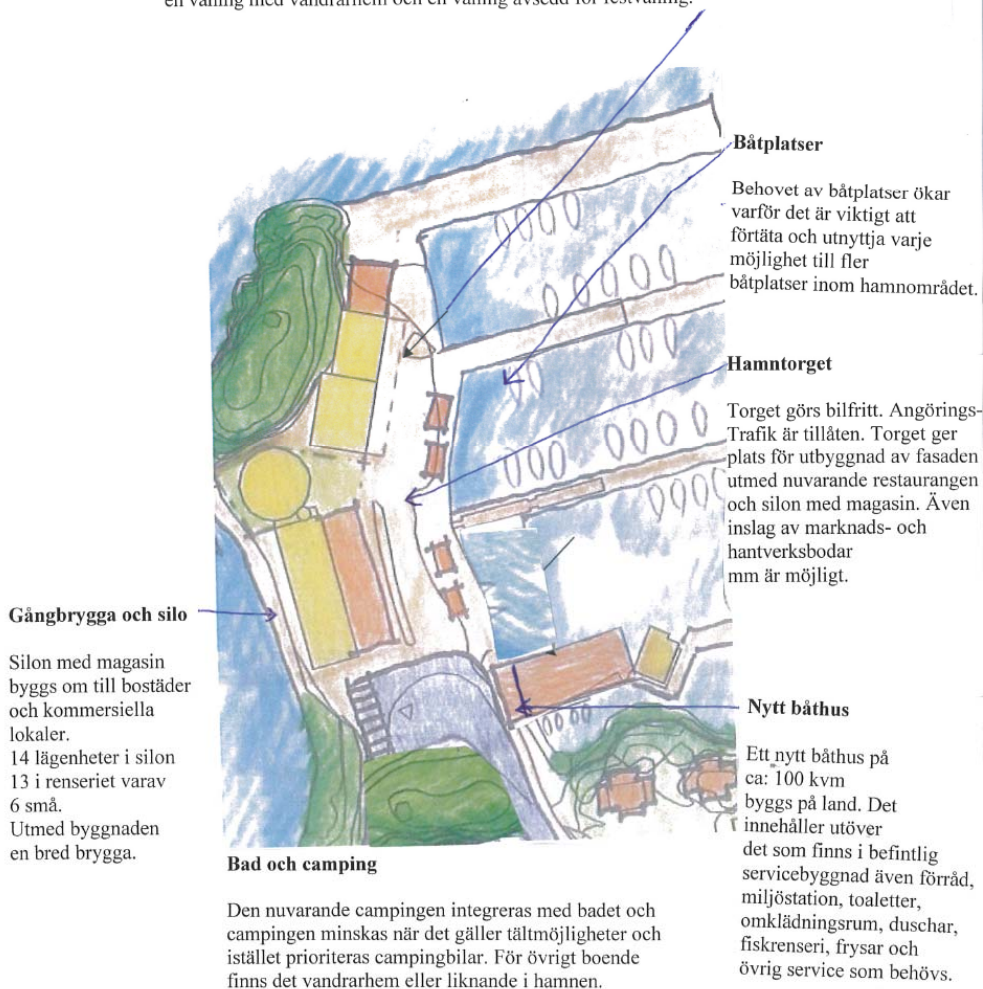 en våning med vandrarhem och en våning avsedd för festvåning.
Båtplatser
Behovet av båtplatser ökar
varför det är viktigt att
förtäta och utnyttja varje
möjlighet till fler
båtplatser inom hamnområdet.
Hamntorget
Torget görs bilfritt. Angörings-
Trafik är tillåten. Torget ger
plats för utbyggnad av fasaden
utmed nuvarande restaurangen
och silon med magasin. Även
inslag av marknads- och
hantverksbodar
mm är möjligt.
Gångbrygga och silo
Silon med magasin
byggs om till bostäder
och kommersiella
lokaler.
14 lägenheter i silon
13 i renseriet varav
6 små.
Utmed byggnaden
en bred brygga.
Nytt båthus
Ett nytt båthus på
ca: 100 kvm
byggs på land. Det
innehåller utöver
det som finns i befintlig
servicebyggnad även förråd,
miljöstation, toaletter,
omklädningsrum, duschar,
fiskrenseri, frysar och
övrig service som behövs.
Bad och camping
Den nuvarande campingen integreras med badet och
campingen minskas när det gäller tältmöjligheter och
istället prioriteras campingbilar. För övrigt boende
finns det vandrarhem eller liknande i hamnen.